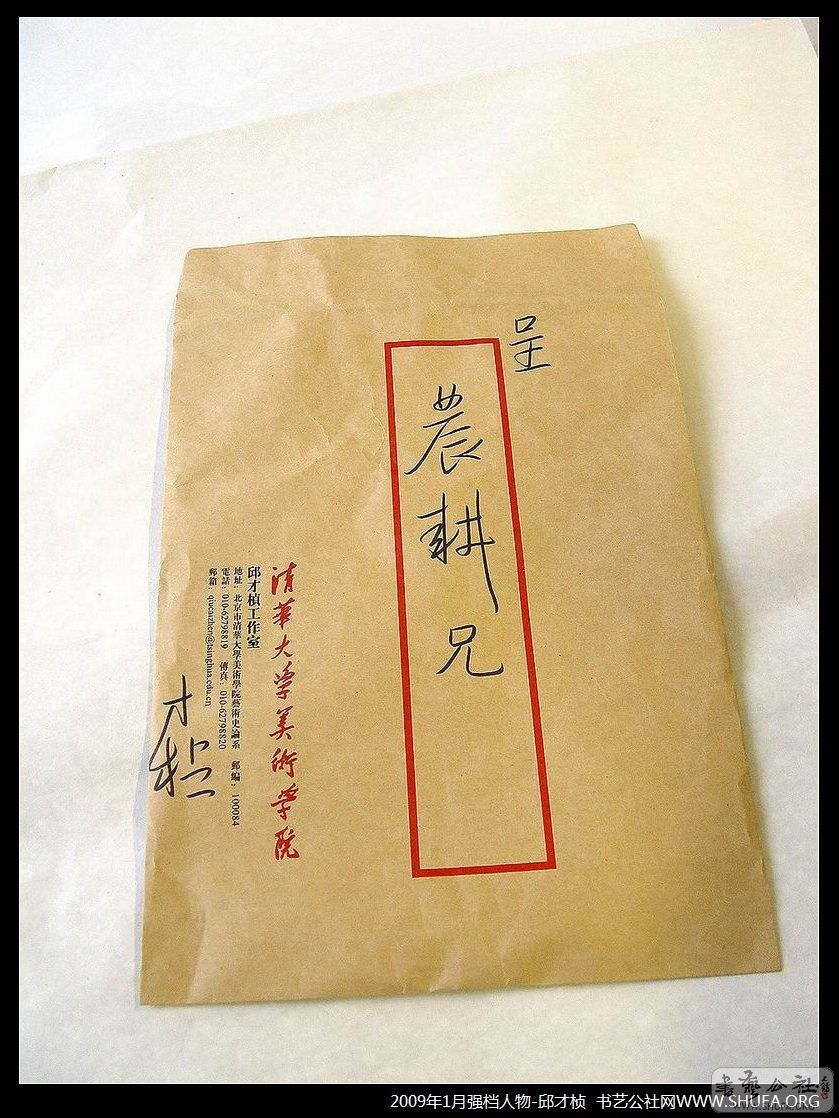 呈
農耕兄
清華大学美術学院
邱才楨工作室
地址：北京市清華大學美術學院藝術史論系 郵編：100084
電話：010-62798819 傳真：010-62798820
郵箱：qiucaizhen@tsinghua.edu.cn
才楨
書藝公社
2009年1月强档人物-邱才桢 书艺公社网WWW.SHUFA.ORG